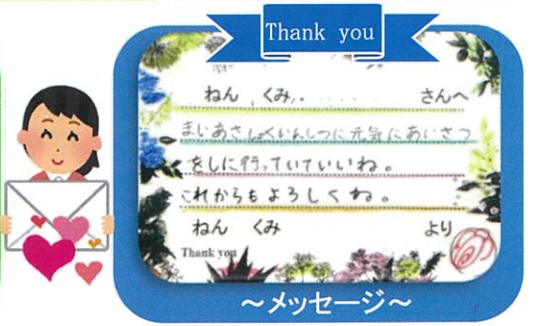 Thank you
ねん くみ さんへ
まいあさしょくいんしつに元気にあいさつ
をしに行っていていいね。
これからもよろしくね。
ねん くみ より
Thank you
～メッセージ～